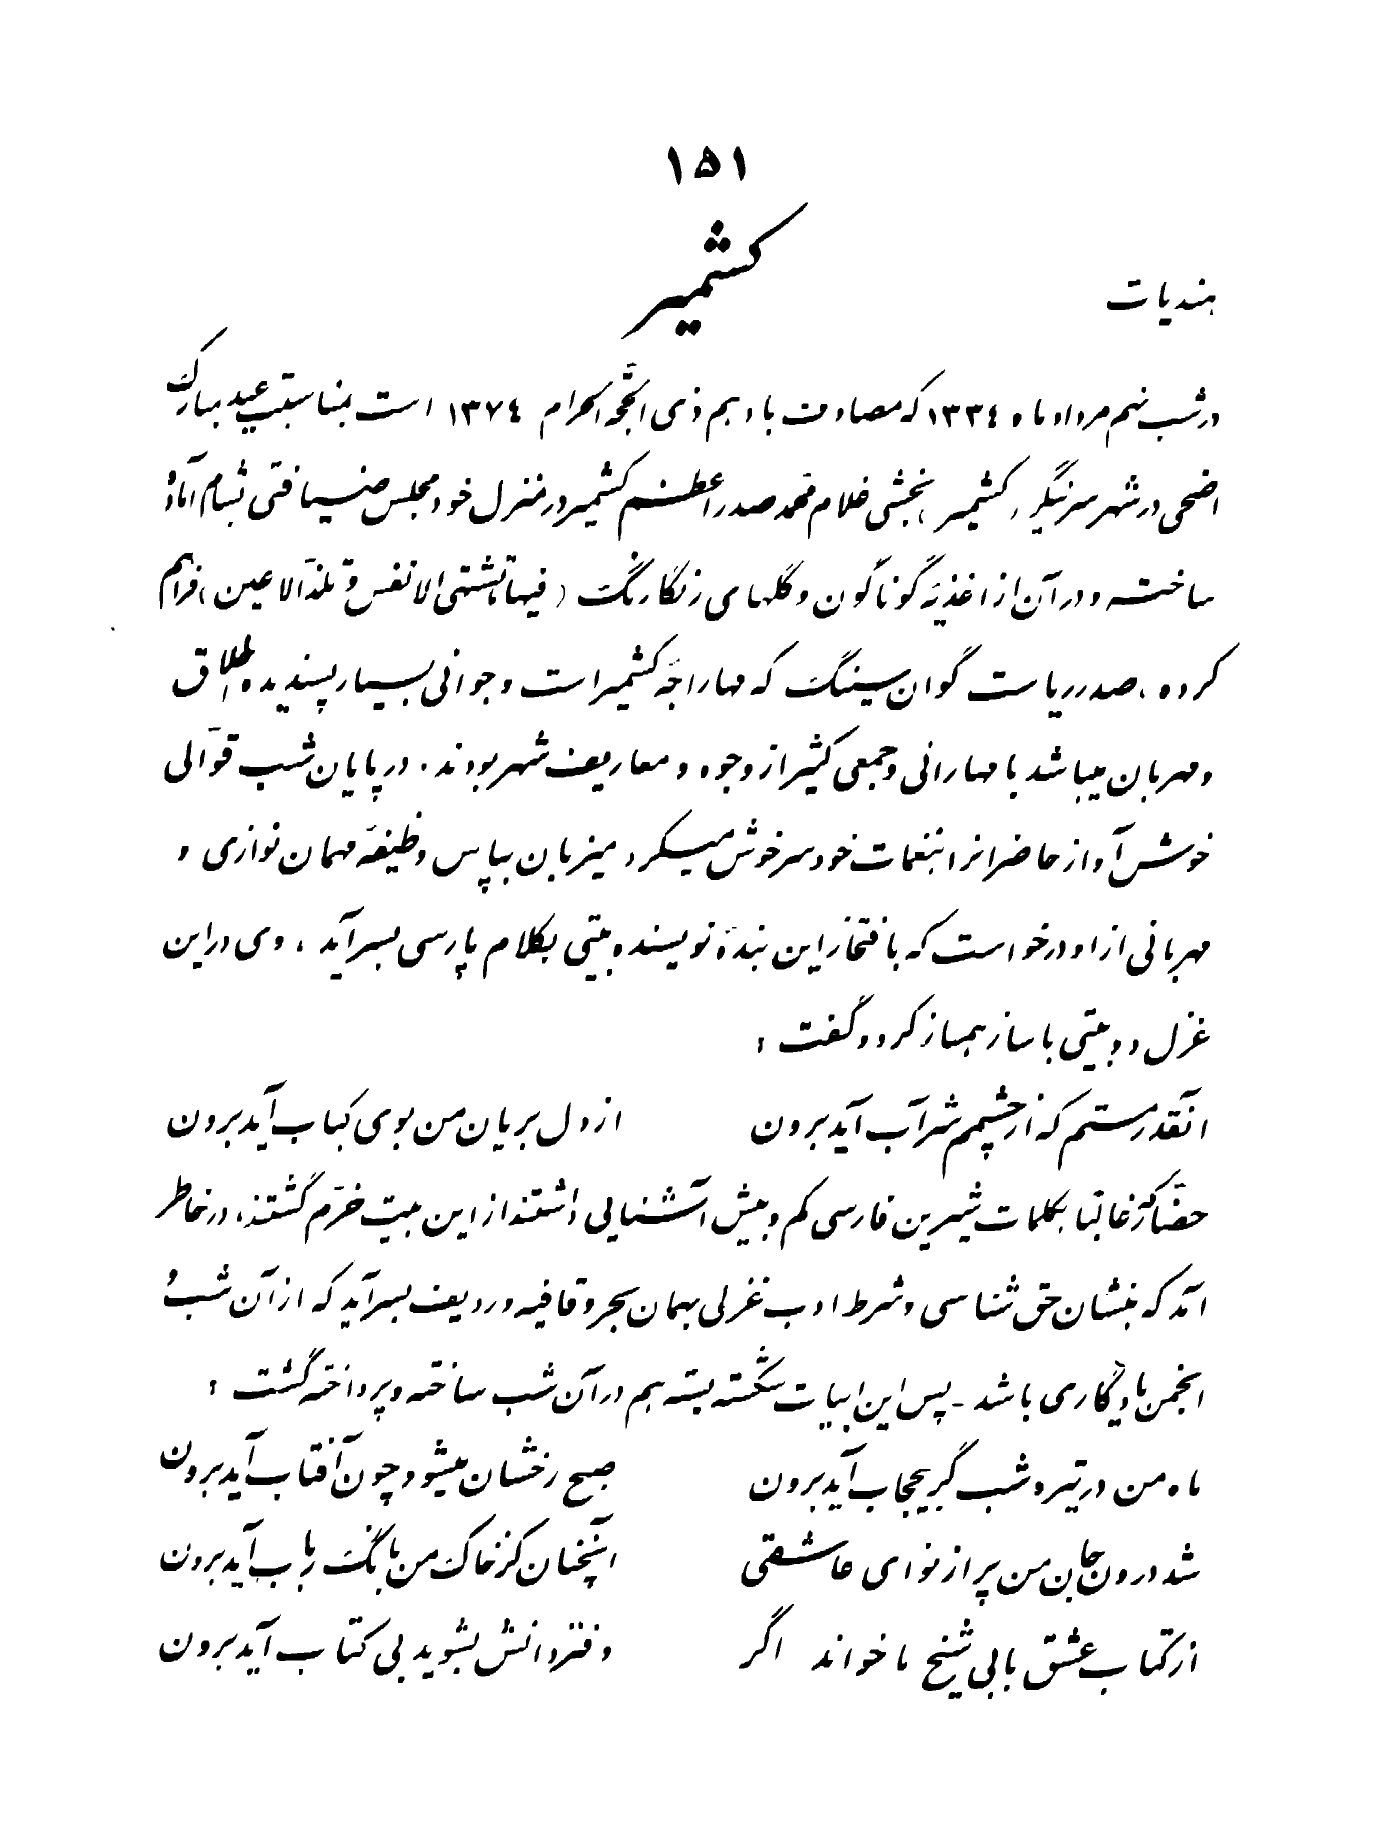 ۱۵۱
کشمیر
هندیات
در شب نهم مرداد ماه ۱۳۳٤ که مصادف با دهم ذی الحجّه الحرام ۱۳۷٤ است بمناسبت عید مبارک
اضحی در شهر سرنیگر (کشمیر) بخشی غلام محمّد صدر اعظم کشمیر در منزل خود مجلس ضیافتی بشام آماده
ساخته و در آن از اغذیهٔ گوناگون و گلهای رنگارنگ (فیها تشتهی الانفس و تلذّ الاعین) فراهم
کرده، صدر ریاست گوان سینگ که مهاراجهٔ کشمیر است و جوانی بسیار پسندیده اخلاق
و مهربان میباشد با مهارانی و جمعی کثیر از وجوه و معاریف شهر بودند. در پایان شب قوّالی
خوش آواز حاضرانرا بنغمات خود سرخوش میکرد میزبان بپاس وظیفهٔ مهمان نوازی و
مهربانی از او درخواست که بافتخار این بندهٔ نویسنده بیتی بکلام پارسی بسرآید، وی در این
غزل دو بیتی با ساز همساز کرد و گفت:
آنقدر مستم که از چشمم شراب آید برون
از دل بریان من بوی کباب آید برون
حضّار که غالبا بکلمات شیرین فارسی کم و بیش آشنایی داشتند از این بیت خرّم گشتند، در خاطر
آمد که بنشان حق شناسی و شرط ادب غزلی بهمان بحر و قافیه و ردیف بسرآید که از آن شب و
انجمن یادگاری باشد - پس این ابیات شکسته بسته هم در آن شب ساخته و پرداخته گشت:
ماه من در تیره شب گر بیحجاب آید برون
صبح رخشان میشود چون آفتاب آید برون
شد درون جان من پر از نوای عاشقی
آنچنان کز خاک من بانگ رباب آید برون
از کتاب عشق بابی شیخ ما خواند اگر
دفتر دانش بشوید بی کتاب آید برون